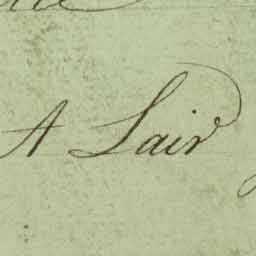 A Lair